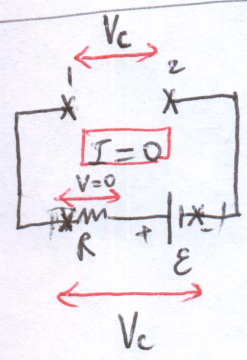 Vc
1 2
I=0
V=0
R + ε -
Vc